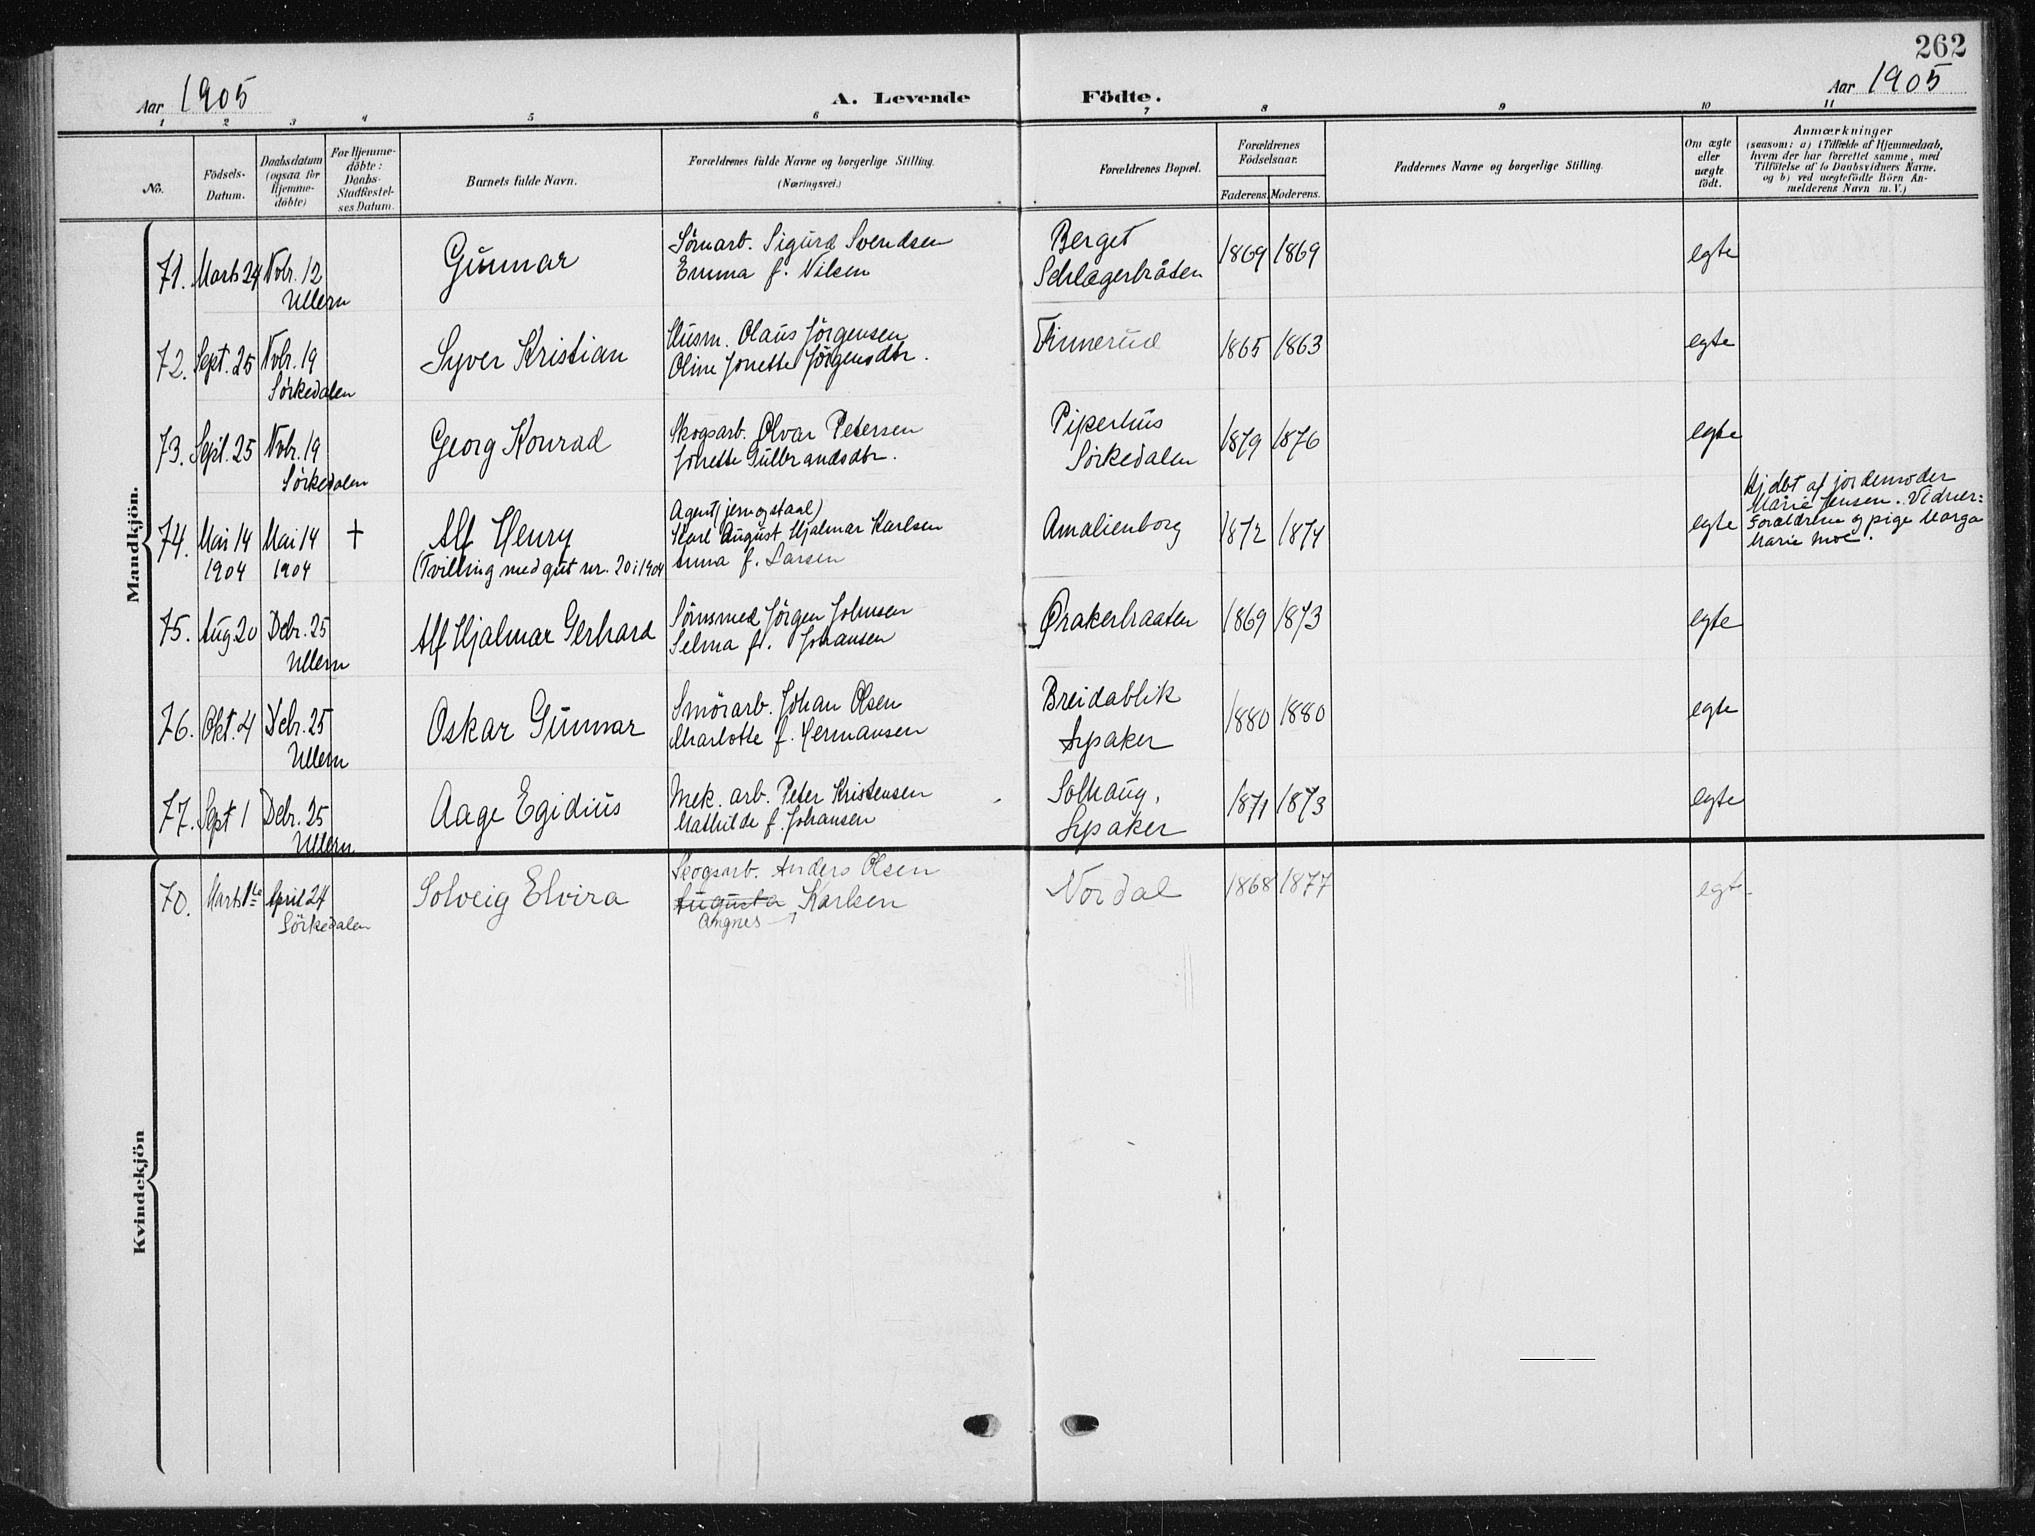 262
Aar 1905
A. Levende Födte.
Aar 1905
1 2 3 4 5 6 7 8 9 10 11
No.
Födsels-
Datum.
Daabsdatum
(ogsaa for
Hjemme-
döbte)
For Hjemme-
döbte:
Daabs-
Stadfæstel-
ses Datum.
Barnets fulde Navn.
Forældrenes fulde Navne og borgerlige Stilling.
(Næringsvei.)
Forældrenes Bopæl.
Forældrenes
Födselsaar.
Faderens. Moderens.
Faddernes Navne og borgerlige Stilling.
Om ægte
eller
uægte
födt.
Anmærkninger
(saasom: a) i Tilfælde af Hjemmedaab,
hvem der har forrettet samme, med
Tilföielse af to Daabsvidners Navne.
og b) ved uægtefödte Börn An-
melderens Navn m. V.)
Mandkjön.
71. Marts 24 Nvbr. 12 Ullern
Gunnar
Sømarb. Sigurd Svendsen
Emma f. Nilsen
Berget
Schlagerbråten
1869 1869
egte
72. Sept. 25 Nvbr. 19 Sørkedalen
Syver Kristian
Husm. Olaus Jørgensen
Oline Jonette Jørgensdtr.
Finnerud
1865 1863
egte
73. Sept. 25 Nvbr. 19 Sørkedalen
Georg Konrad
Skogsarb. Olvar Petersen
Jonette Gulbrandsdtr.
Piperhus
Sørkedalen
1879 1876
egte
74. Mai 14 1904 Mai 14 1904 +
Alf Henry
(Tvilling med gut nr. 20 i 1904
Agent (jern og staal)
Karl August Hjalmar Karlsen
Anna f. Larsen
Amalienborg
1872 1874
egte
Hj.dbt af jordemoder
Marie Jensen. Vidner:
Forældrene og pige Marga
Marie Moe.
75. Aug 20 Debr. 25 Ullern
Alf Hjalmar Gerhard
Sømsmed Jørgen Johnsen
Selma f. Johansen
Ørakerbraaten
1869 1873
egte
76. Okt. 4 Debr. 25 Ullern
Oskar Gunnar
Smörarb. Johan Olsen
Charlotte f. Hermansen
Breidablik
Lysaker
1880 1880
egte
77. Sept 1 Debr. 25 Ullern
Aage Egidius
Mek. arb. Peter Kristensen
Mathilde f. Johansen
Solhaug,
Lysaker
1871 1873
egte
Kvindekjön
70. Marts 1ste April 24 Sörkedalen
Solveig Elvira
Skogsarb. Anders Olsen
Augusta Karlsen
Angnes
Nordal
1868 1877
egte